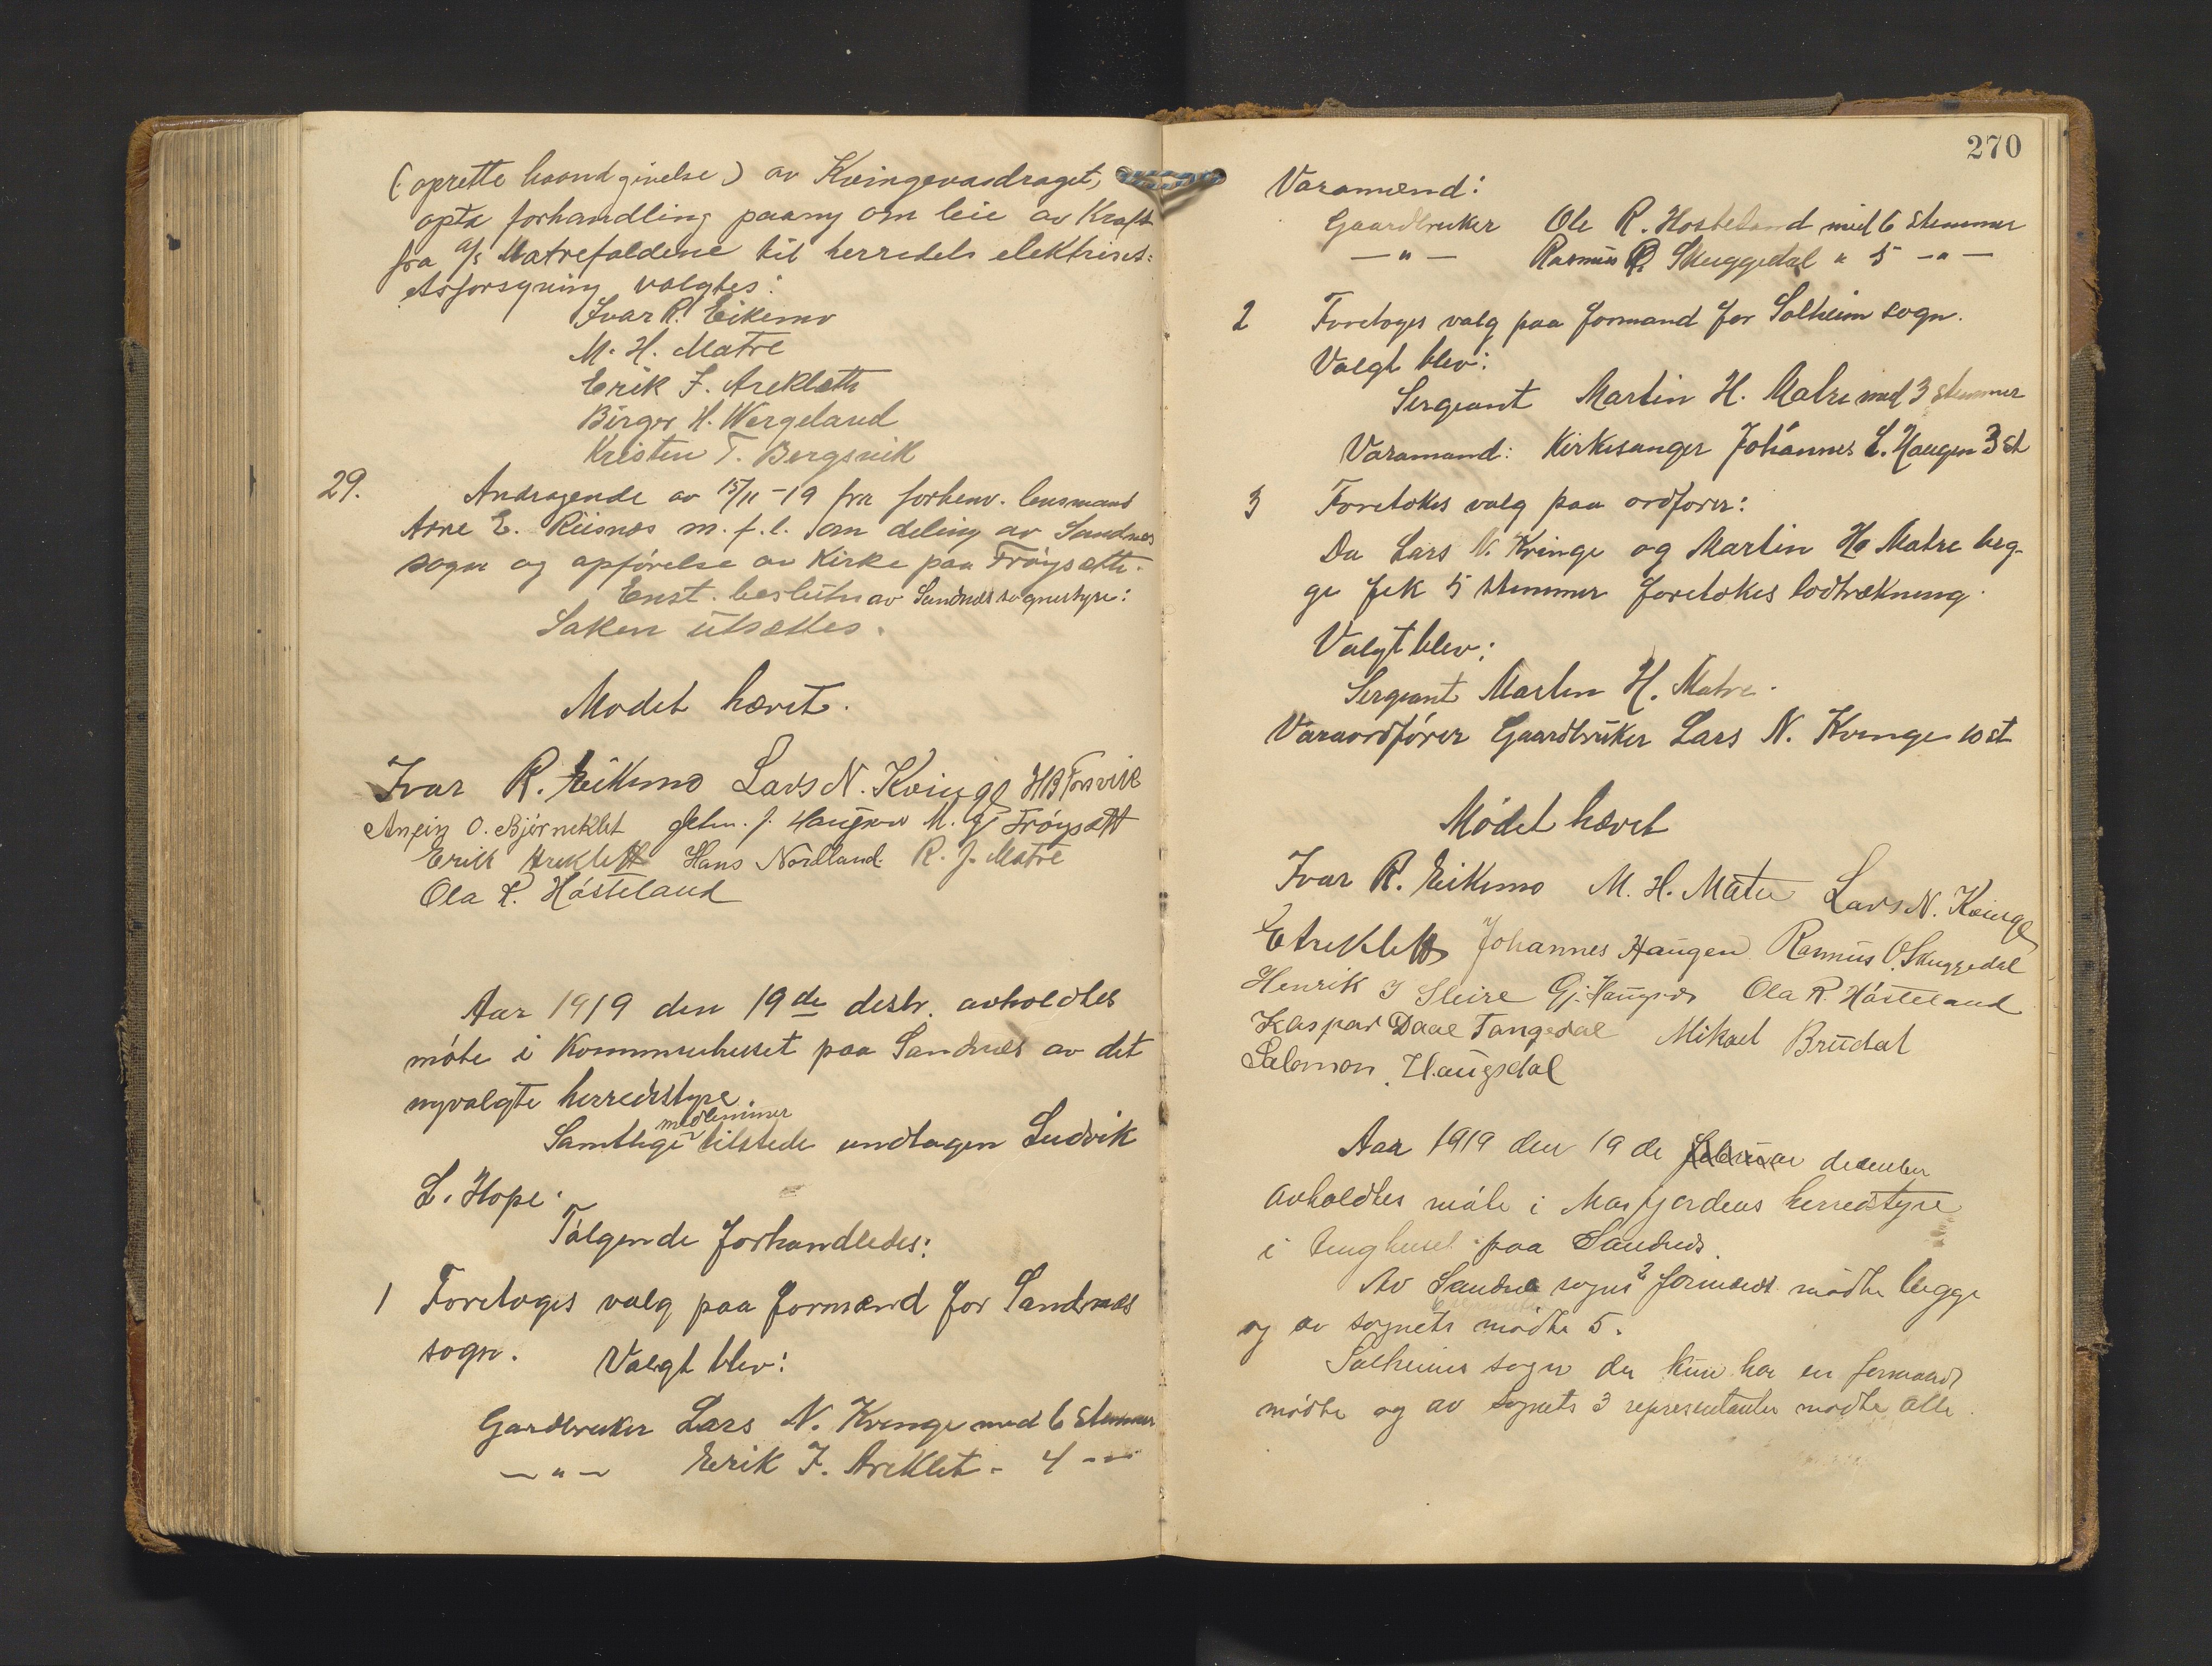 (oprette haandgivelse) av Kvingevasdraget,
opta forhandling paany om leie av Kraft
fra A/s Matrefaldene til herredets elektrisit-
etsforsyning valgtes:
Ivar R. Eikemo
M. H. Matre
Erik J. Areklett
Birger H. Wergeland
Kristen T. Bergsvik
29. Andragende av 15/11-19 fra forhenv. lensmand
Arne E. Riisnes m. fl. om deling av Sandnes
sogn og opførelse av Kirke paa Frøysett.
Enst. beslutn av Sandnes sognestyre:
Saken utsættes.
Mødet hævet.
Ivar R. Eikemo Lars N. Kvinge HB Forsvik
O. Bjørneklet J. Haugsvær M. G. Frøysett
Erik Areklett Hans Nordland. R. J. Matre
Ola R. Håsteland
Aar 1919 den 19de desbr. avholdtes
møte i Kommunehuset paa Sandnes av det
nyvalgte herredsstyre.
medlemmer
Samtlige tilstede undtagen Ludvik
L. Hope.
Følgende forhandledes:
1 Foretoges valg paa formænd for Sandnes
sogn. Valgt blev:
Gardbruker Lars N. Kvinge med 6 stemmer
—"— Erik J. Areklet - 4 -"-
270
Varamænd:
Gaardbruker Ole R. Hosteland med 6 stemmer
—"— Rasmus O. Skuggedal " 5 —"—
2 Foretoges valg paa formand for Solheim sogn.
Valgt blev:
Sergeant Martin H. Matre med 3 stemmer
Varamand: Kirkesanger Johannes L. Haugen 3 st
3 Foretokes valg paa ordfører:
Da Lars N. Kvinge og Martin H. Matre beg-
ge fik 5 stemmer foretokes lodtrækning.
Valgt blev:
Sergeant Martin H. Matre.
Varaordfører Gaardbruker Lars N. Kvinge 10 st
Mødet hævet
Ivar R. Eikemo M. H. Matre Lars N. Kvinge
E Areklett Johannes Haugen Rasmus O. Skuggedal
Henrik J Sleire Gj. Haugsvær Ola R. Håsteland
Kaspar Daae Tangedal Mikael Brudal
Salomon Haugsdal
Aar 1919 den 19 de februar december
avholdtes møte i Masfjordens herredstyre
i tinghuset paa Sandnes.
Av Sandnes sogns 2 formænd mødte begge
og av sognets mødte 5.
Solheims sogn der kun har en formand
mødte og av sognets 3 representanter mødte alle.